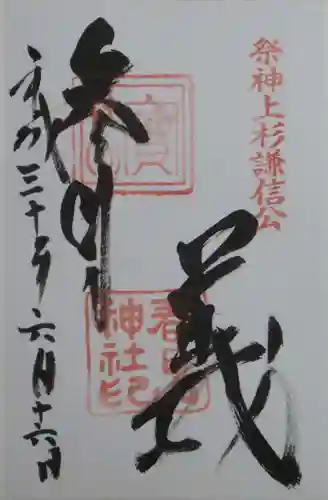 祭神上杉謙信公
義
春日山
神社印
参拝
平成三十年六月十六日